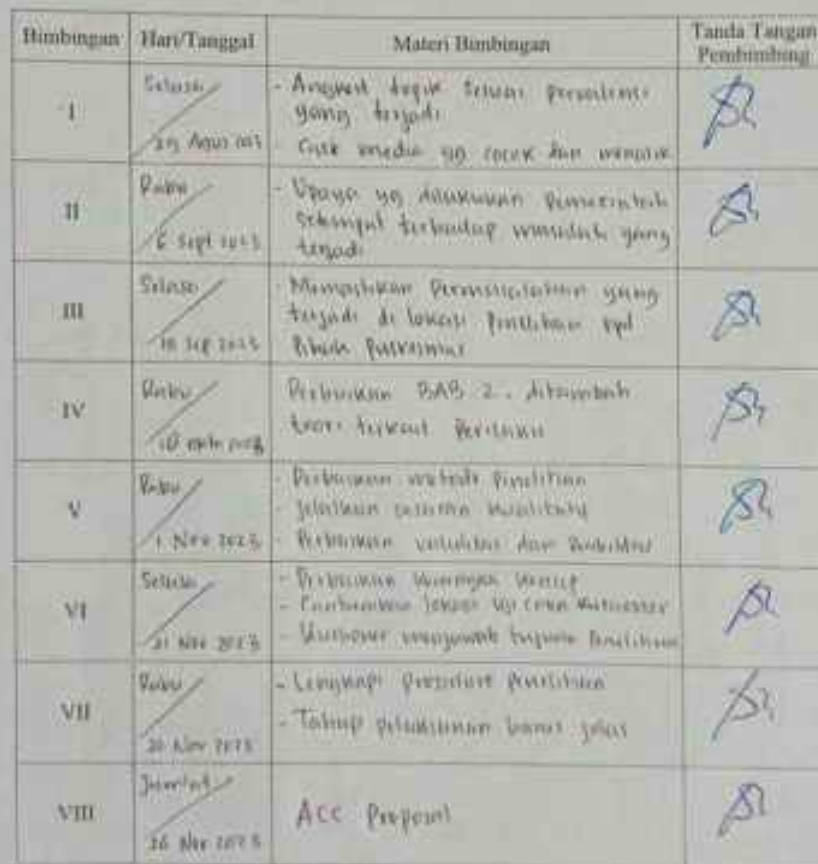 Bimbingan Hari/Tanggal Materi Bimbingan Tanda Tangan
Pembimbing
I
Selasa
29 Agus
- Angkat topik sesuai
yang terjadi
- media yg cocok dan menarik
II
Rabu
6 Sept 2023
- Upaya yg dilakukan pemerintah
setempat terhadap masalah yang
terjadi
III
Selasa
Sep 2023
- Memastikan permasalahan yang
terjadi di lokasi penelitian
Pihak Puskesmas
IV
Rabu
Perbaikan BAB 2. ditambah
teori terkait Perilaku
V
Rabu
1 Nov 2023
- Perbaikan metode Penelitian
- Jelaskan
- Perbaikan validitas dan
VI
Selasa
21 Nov 2023
- Perbaikan
- lokasi uji coba
- menjawab tujuan Penelitian
VII
Rabu
Nov 2023
- Lengkapi Penelitian
- Tahap pelaksanaan harus jelas
VIII
Nov 2023
ACC Proposal